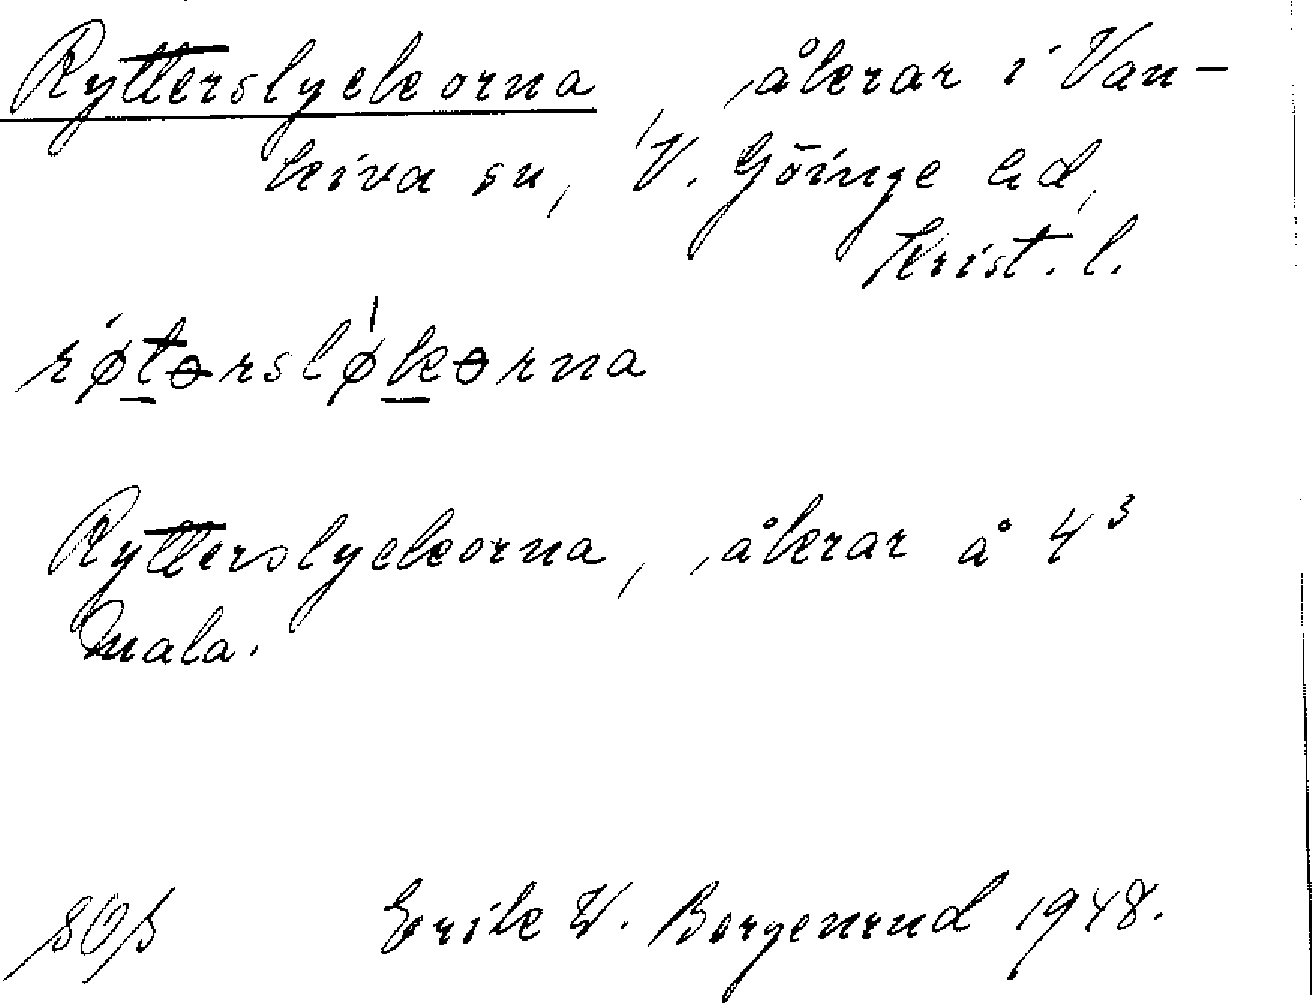 Rytterslyckorna, åkrar i Van-
kiva sn, V. Göinge hd,
Krist. l.
røtərsløkərna
Rytterslyckorna, åkrar å 4³
Mala.
Erik W. Borgenrud 1948.